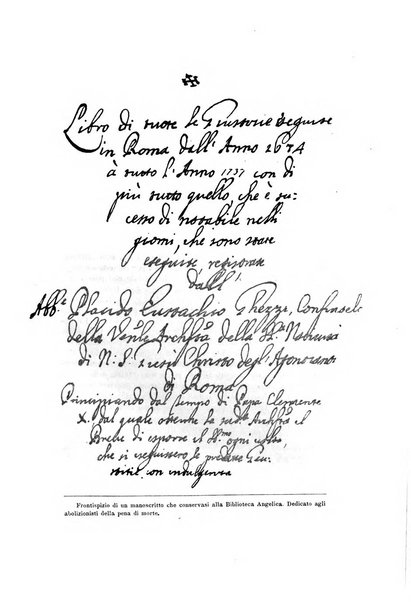 Libro di tutte le Giustitie eseguite
in Roma dall'Anno 1674
à tutto l'Anno 1737 con di
più tutto quello, che è su-
cesso di notabile nelli
giorni, che sono state
eseguite registrate
dall'
Abb.e Placido Eustachio Ghezzi, Confratello
della Ven.le Archi della S. Natività
di N. S. Giesù Christo degl'Agonizanti
di Roma
Principiando dal tempo di Papa Clemente
X. dal quale ottenne la sud.a Archi il
Breve di esporre il ogni volta,
che si eseguissero le predette Gius-
titie con indulgenza
Frontispizio di un manoscritto che conservasi alla Biblioteca Angelica. Dedicato agli
abolizionisti della pena di morte.